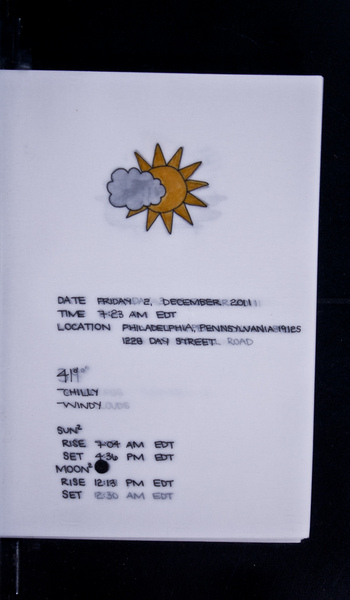 DATE FRIDAY, 2, DECEMBER. 2011
TIME 7:23 AM EDT
LOCATION PHILADELPHIA, PENNSYLVANIA 19125
1228 DAY STREET. ROAD
41°
CHILLY
WINDY
SUN²
RISE 7:04 AM EDT
SET 4:36 PM EDT
MOON²
RISE 12:13 PM EDT
SET 12:30 AM EDT